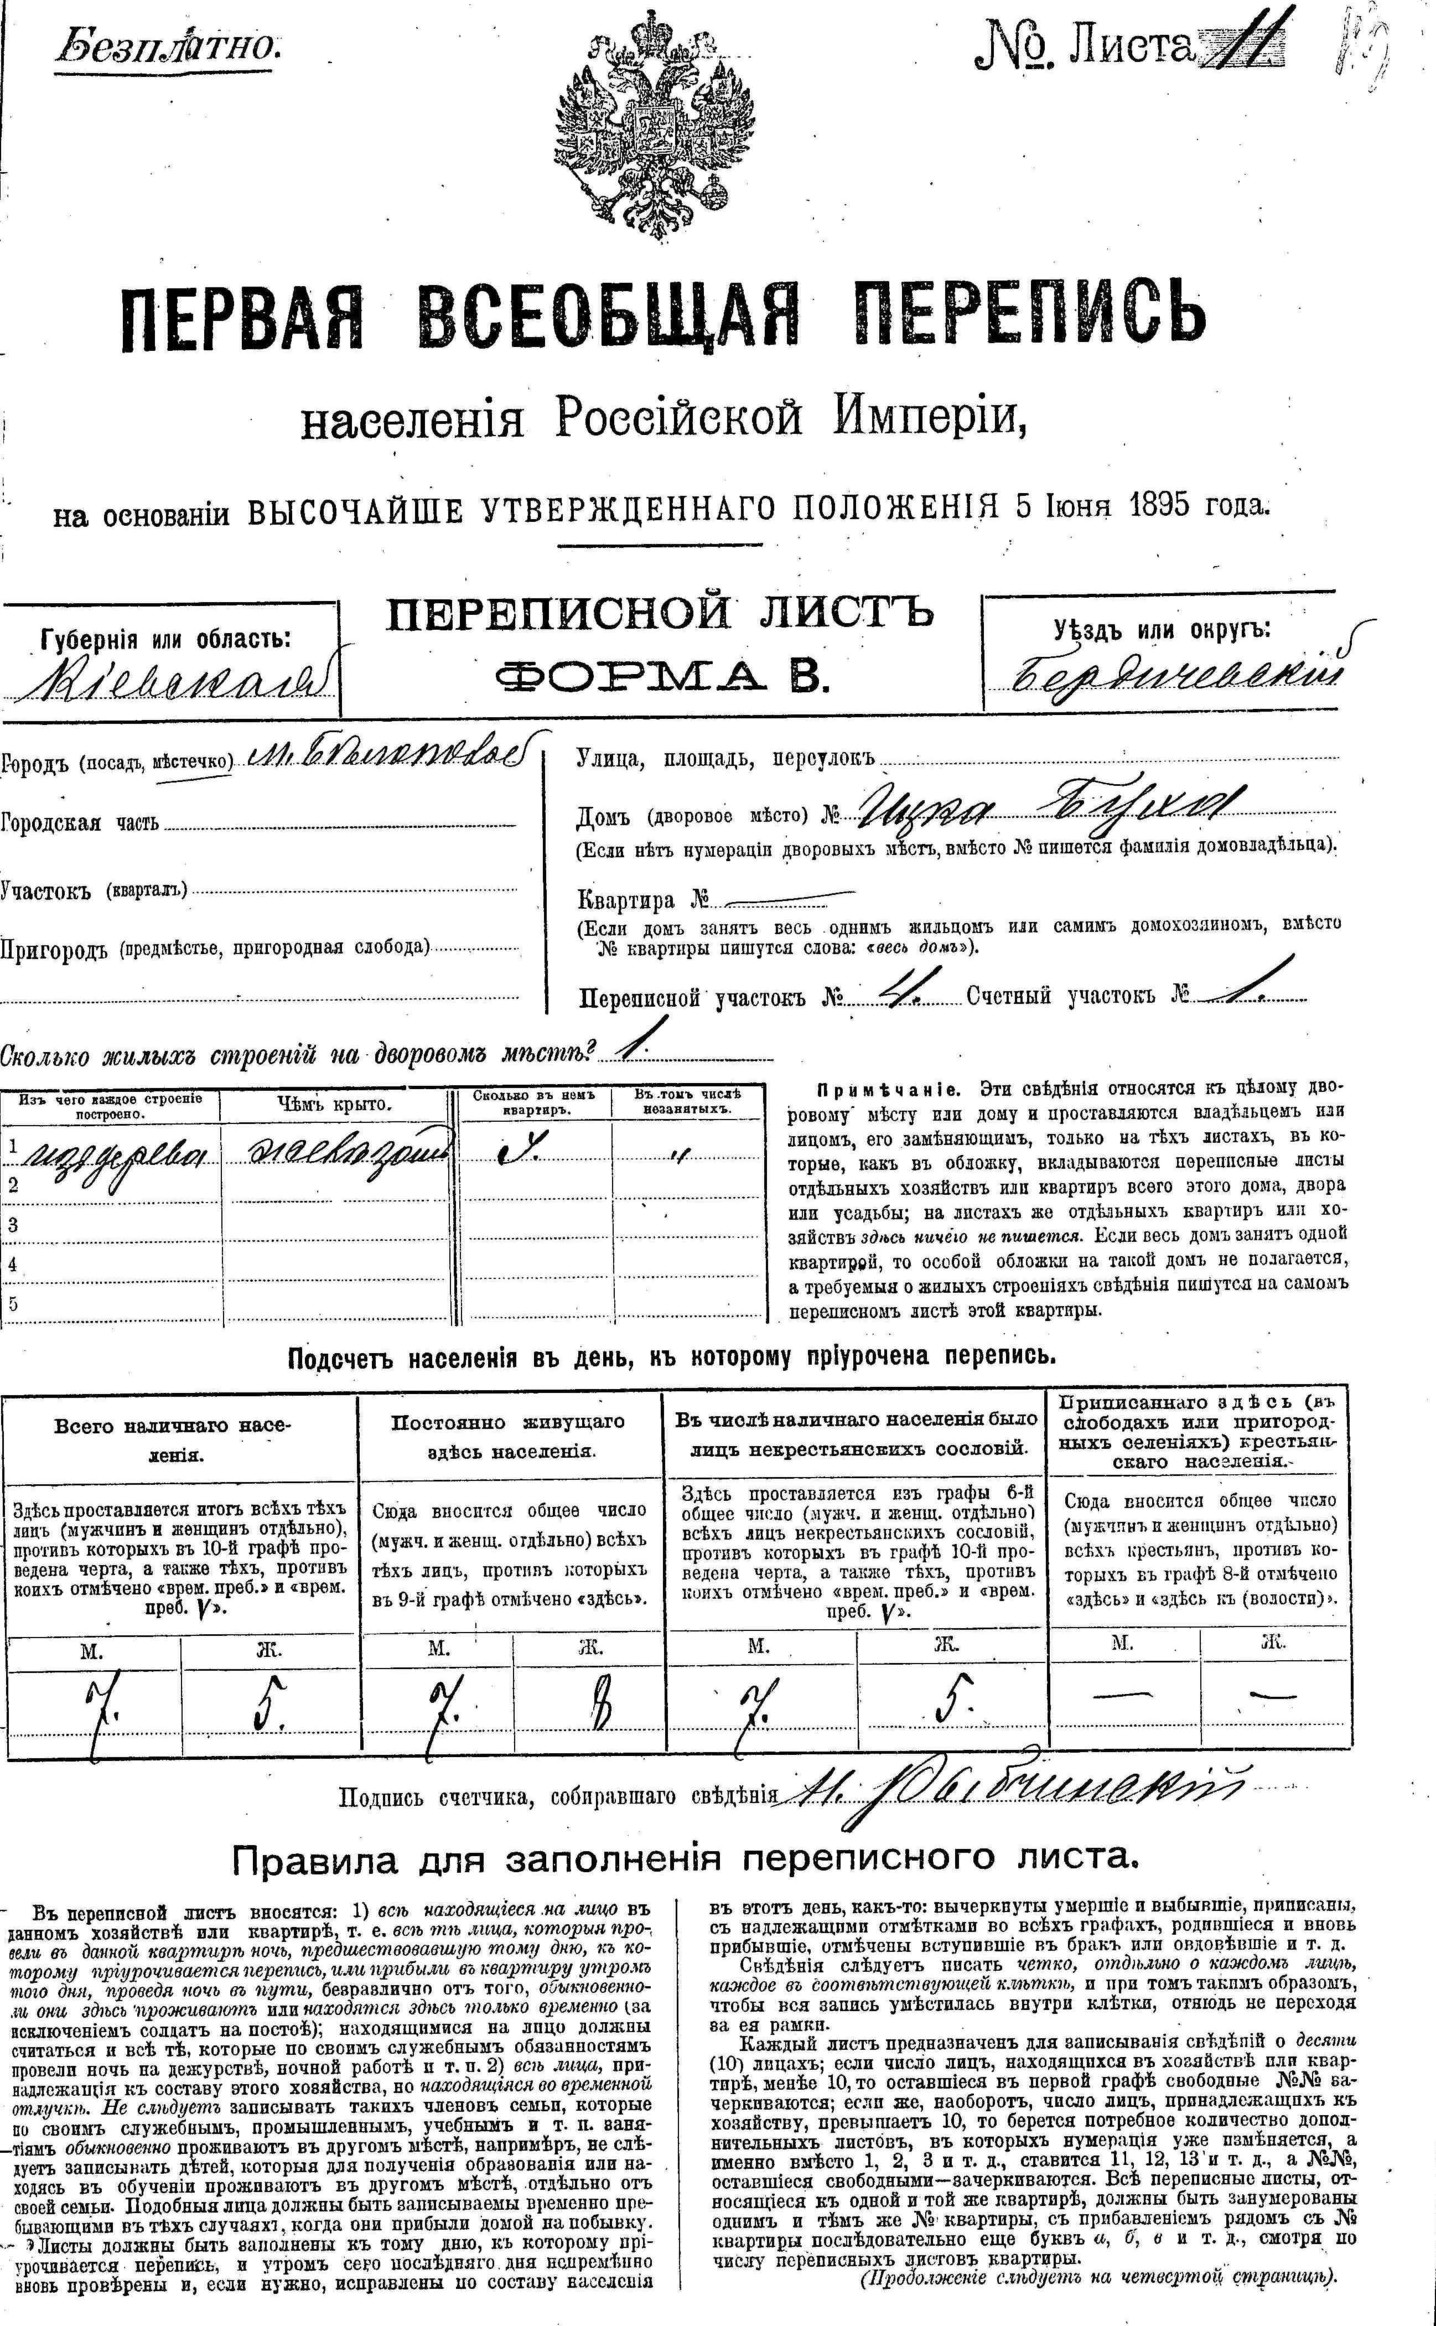 Безплатно.
№. Листа 11
ПЕРВАЯ ВСЕОБЩАЯ ПЕРЕПИСЬ
населенія Россійской Имперіи,
на основаніи ВЫСОЧАЙШЕ УТВЕРЖДЕННАГО ПОЛОЖЕНІЯ 5 Іюня 1895 года.
ПЕРЕПИСНОЙ ЛИСТЪ
ФОРМА В.
Губернія или область:
Кіевская
Уѣздъ или округъ:
Бердичевскій
Городъ (посадъ, мѣстечко) м. Бѣлополье
Городская часть
Участокъ (кварталъ)
Пригородъ (предмѣстье, пригородная слобода)
Улица, площадь, переулокъ
Домъ (дворовое мѣсто) № Ицка Буха
(Если нѣтъ нумераціи дворовыхъ мѣстъ, вмѣсто № пишется фамилія домовладѣльца).
Квартира № —
(Если домъ занятъ весь однимъ жильцомъ или самимъ домохозяиномъ, вмѣсто
№ квартиры пишутся слова: «весь домъ»).
Переписной участокъ № 4. Счетный участокъ № 1.
Сколько жилыхъ строеній на дворовомъ мѣстѣ? 1.
Изъ чего каждое строеніе построено.
Чѣмъ крыто.
Сколько въ немъ квартиръ.
Въ томъ числѣ незанятыхъ.
1 изъ дерева "
2
3
4
5
Примѣчаніе. Эти свѣдѣнія относятся къ цѣлому дво-
ровому мѣсту или дому и проставляются владѣльцемъ или
лицомъ, его замѣняющимъ, только на тѣхъ листахъ, въ ко-
торые, какъ въ обложку, вкладываются переписные листы
отдѣльныхъ хозяйствъ или квартиръ всего этого дома, двора
или усадьбы; на листахъ же отдѣльныхъ квартиръ или хо-
зяйствъ здѣсь ничего не пишется. Если весь домъ занятъ одной
квартирой, то особой обложки на такой домъ не полагается,
а требуемыя о жилыхъ строеніяхъ свѣдѣнія пишутся на самомъ
переписномъ листѣ этой квартиры.
Подсчетъ населенія въ день, къ которому пріурочена перепись.
Всего наличнаго насе-
ленія.
Здѣсь проставляется итогъ всѣхъ тѣхъ
лицъ (мужчинъ и женщинъ отдѣльно),
противъ которыхъ въ 10-й графѣ про-
ведена черта, а также тѣхъ, противъ
коихъ отмѣчено «врем. преб.» и «врем.
преб. V».
Постоянно живущаго
здѣсь населенія.
Сюда вносится общее число
(мужч. и женщ. отдѣльно) всѣхъ
тѣхъ лицъ, противъ которыхъ
въ 9-й графѣ отмѣчено «здѣсь».
Въ числѣ наличнаго населенія было
лицъ некрестьянскихъ сословій.
Здѣсь проставляется изъ графы 6-й
общее число (мужч. и женщ. отдѣльно)
всѣхъ лицъ некрестьянскихъ сословій,
противъ которыхъ въ графѣ 10-й про-
ведена черта, а также тѣхъ, противъ
коихъ отмѣчено «врем. преб.» и «врем.
преб. V».
Приписаннаго здѣсь (въ
слободахъ или пригород-
ныхъ селеніяхъ) крестьян-
скаго населенія.
Сюда вносится общее число
(мужчинъ и женщинъ отдѣльно)
всѣхъ крестьянъ, противъ ко-
торыхъ въ графѣ 8-й отмѣчено
«здѣсь» и «здѣсь къ (волости)».
М. Ж. М. Ж. М. Ж. М. Ж.
7. 5. 7. 8 7. 5. — —
Подпись счетчика, собиравшаго свѣдѣнія Н. Рыбчинскій
Правила для заполненія переписного листа.
Въ переписной листъ вносятся: 1) всѣ находящіеся на лицо въ
данномъ хозяйствѣ или квартирѣ, т. е. всѣ тѣ лица, которыя про-
вели въ данной квартирѣ ночь, предшествовавшую тому дню, къ ко-
торому пріурочивается перепись, или прибыли въ квартиру утромъ
того дня, проведя ночь въ пути, безразлично отъ того, обыкновенно-
ли они здѣсь проживаютъ или находятся здѣсь только временно (за
исключеніемъ солдатъ на постоѣ); находящимися на лицо должны
считаться и всѣ тѣ, которые по своимъ служебнымъ обязанностямъ
провели ночь на дежурствѣ, ночной работѣ и т. п. 2) всѣ лица, при-
надлежащія къ составу этого хозяйства, но находящіяся во временной
отлучкѣ. Не слѣдуетъ записывать такихъ членовъ семьи, которые
по своимъ служебнымъ, промышленнымъ, учебнымъ и т. п. заня-
тіямъ обыкновенно проживаютъ въ другомъ мѣстѣ, напримѣръ, не слѣ-
дуетъ записывать дѣтей, которыя для полученія образованія или на-
ходясь въ обученіи проживаютъ въ другомъ мѣстѣ, отдѣльно отъ
своей семьи. Подобныя лица должны быть записываемы временно пре-
бывающими въ тѣхъ случаяхъ, когда они прибыли домой на побывку.
Листы должны быть заполнены къ тому дню, къ которому прі-
урочивается перепись, и утромъ сего послѣдняго дня непремѣнно
вновь провѣрены и, если нужно, исправлены по составу населенія
въ этотъ день, какъ-то: вычеркнуты умершіе и выбывшіе, приписаны,
съ надлежащими отмѣтками во всѣхъ графахъ, родившіеся и вновь
прибывшіе, отмѣчены вступившіе въ бракъ или овдовѣвшіе и т. д.
Свѣдѣнія слѣдуетъ писать четко, отдѣльно о каждомъ лицѣ,
каждое въ соотвѣтствующей клѣткѣ, и при томъ такимъ образомъ,
чтобы вся запись умѣстилась внутри клѣтки, отнюдь не переходя
за ея рамки.
Каждый листъ предназначенъ для записыванія свѣдѣній о десяти
(10) лицахъ; если число лицъ, находящихся въ хозяйствѣ или квар-
тирѣ, менѣе 10, то оставшіеся въ первой графѣ свободные №№ за-
черкиваются; если же, наоборотъ, число лицъ, принадлежащихъ къ
хозяйству, превышаетъ 10, то берется потребное количество допол-
нительныхъ листовъ, въ которыхъ нумерація уже измѣняется, а
именно вмѣсто 1, 2, 3 и т. д., ставится 11, 12, 13 и т. д., а №№,
оставшіеся свободными—зачеркиваются. Всѣ переписные листы, от-
носящіеся къ одной и той же квартирѣ, должны быть занумерованы
однимъ и тѣмъ же № квартиры, съ прибавленіемъ рядомъ съ №
квартиры послѣдовательно еще буквъ а, б, в и т. д., смотря по
числу переписныхъ листовъ квартиры.
(Продолженіе слѣдуетъ на четвертой страницѣ).